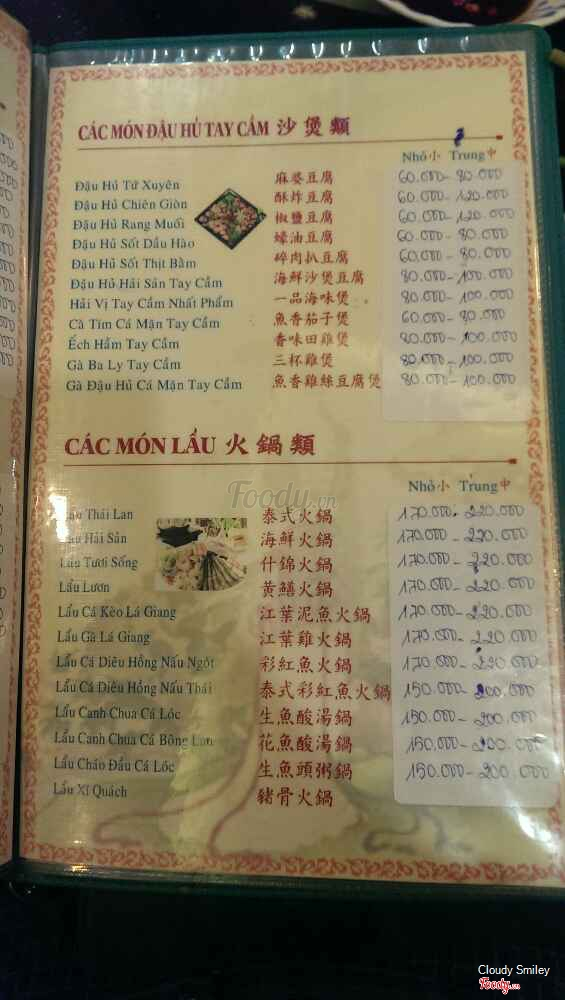 CÁC MÓN ĐẬU HỦ TAY CẦM 沙煲類
Nhỏ小 Trung中
Đậu Hủ Tứ Xuyên 麻婆豆腐 60.000 - 80.000
Đậu Hủ Chiên Giòn 酥炸豆腐 60.000 - 120.000
Đậu Hủ Rang Muối 椒鹽豆腐 60.000 - 120.000
Đậu Hủ Sốt Dầu Hào 蠔油豆腐 60.000 - 80.000
Đậu Hủ Sốt Thịt Bằm 碎肉扒豆腐 60.000 - 80.000
Đậu Hủ Hải Sản Tay Cầm 海鮮沙煲豆腐 80.000 - 100.000
Hải Vị Tay Cầm Nhất Phẩm 一品海味煲 80.000 - 100.000
Cà Tím Cá Mặn Tay Cầm 魚香茄子煲 60.000 - 80.000
Ếch Hầm Tay Cầm 香味田雞煲 80.000 - 100.000
Gà Ba Ly Tay Cầm 三杯雞煲 80.000 - 100.000
Gà Đậu Hủ Cá Mặn Tay Cầm 魚香雞絲豆腐煲 80.000 - 100.000
CÁC MÓN LẨU 火鍋類
Nhỏ小 Trung中
Lẩu Thái Lan 泰式火鍋 170.000 - 220.000
Lẩu Hải Sản 海鮮火鍋 170.000 - 220.000
Lẩu Tươi Sống 什錦火鍋 170.000 - 220.000
Lẩu Lươn 黄鱔火鍋 170.000 - 220.000
Lẩu Cá Kèo Lá Giang 江葉泥魚火鍋 170.000 - 220.000
Lẩu Gà Lá Giang 江葉雞火鍋 170.000 - 220.000
Lẩu Cá Diêu Hồng Nấu Ngót 彩紅魚火鍋 170.000 - 220.000
Lẩu Cá Diêu Hồng Nấu Thái 泰式彩紅魚火鍋 150.000 - 200.000
Lẩu Canh Chua Cá Lóc 生魚酸湯鍋 150.000 - 200.000
Lẩu Canh Chua Cá Bông Lau 花魚酸湯鍋 150.000 - 200.000
Lẩu Cháo Đầu Cá Lóc 生魚頭粥鍋 150.000 - 200.000
Lẩu Xí Quách 豬骨火鍋
Foody.vn
Cloudy Smiley
Foody.vn